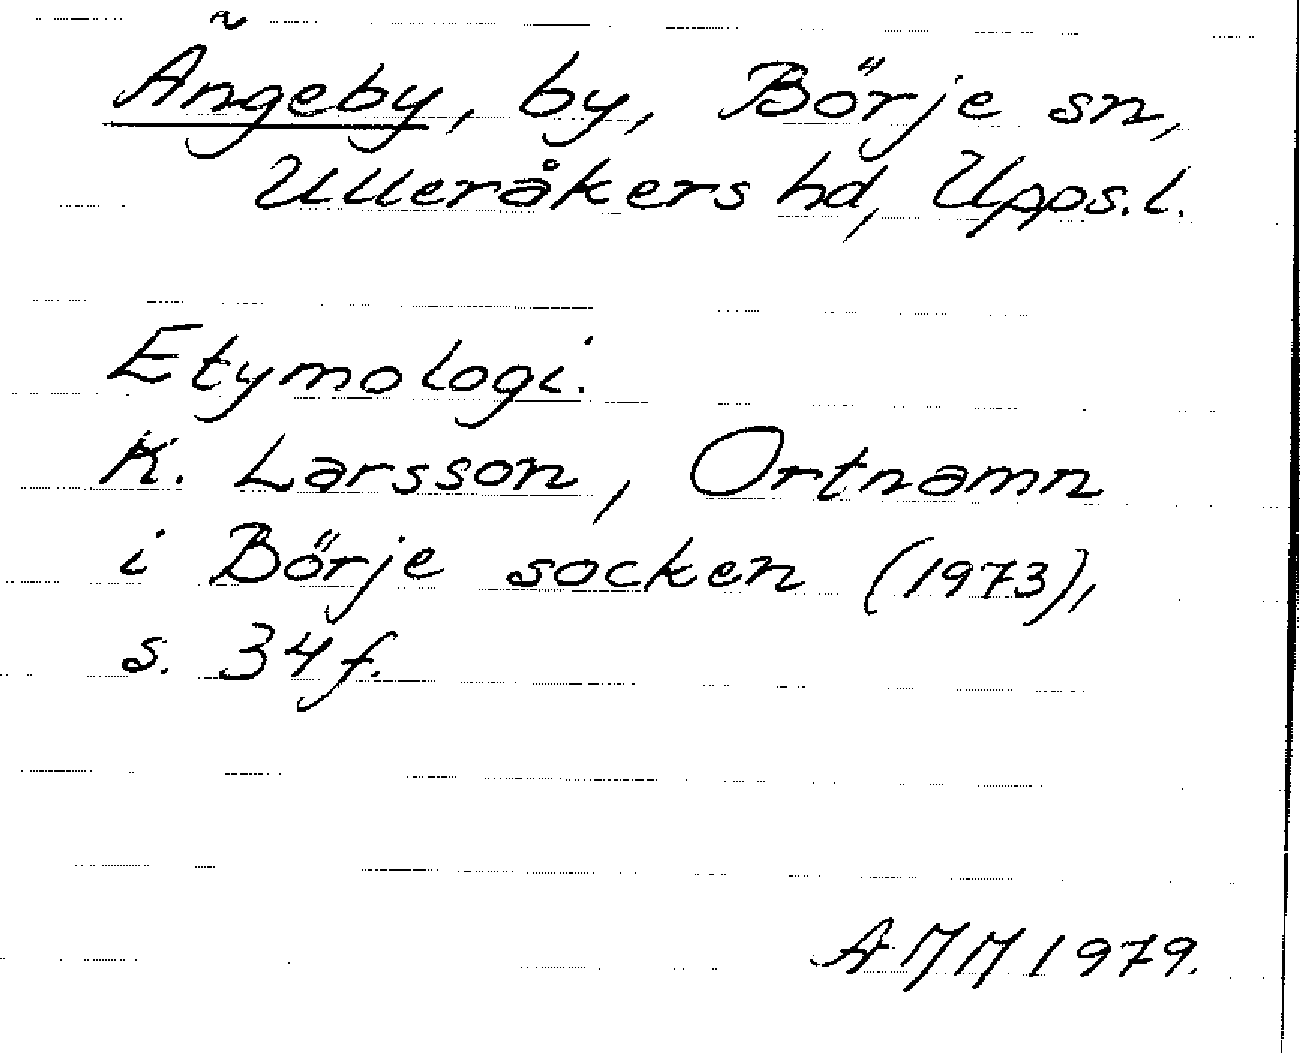 Ängeby, by, Börje sn,
Ulleråkers hd, Upps.l.
Etymologi.
K. Larsson, Ortnamn
i Börje socken (1973),
s. 34 f.
AMM 1979.